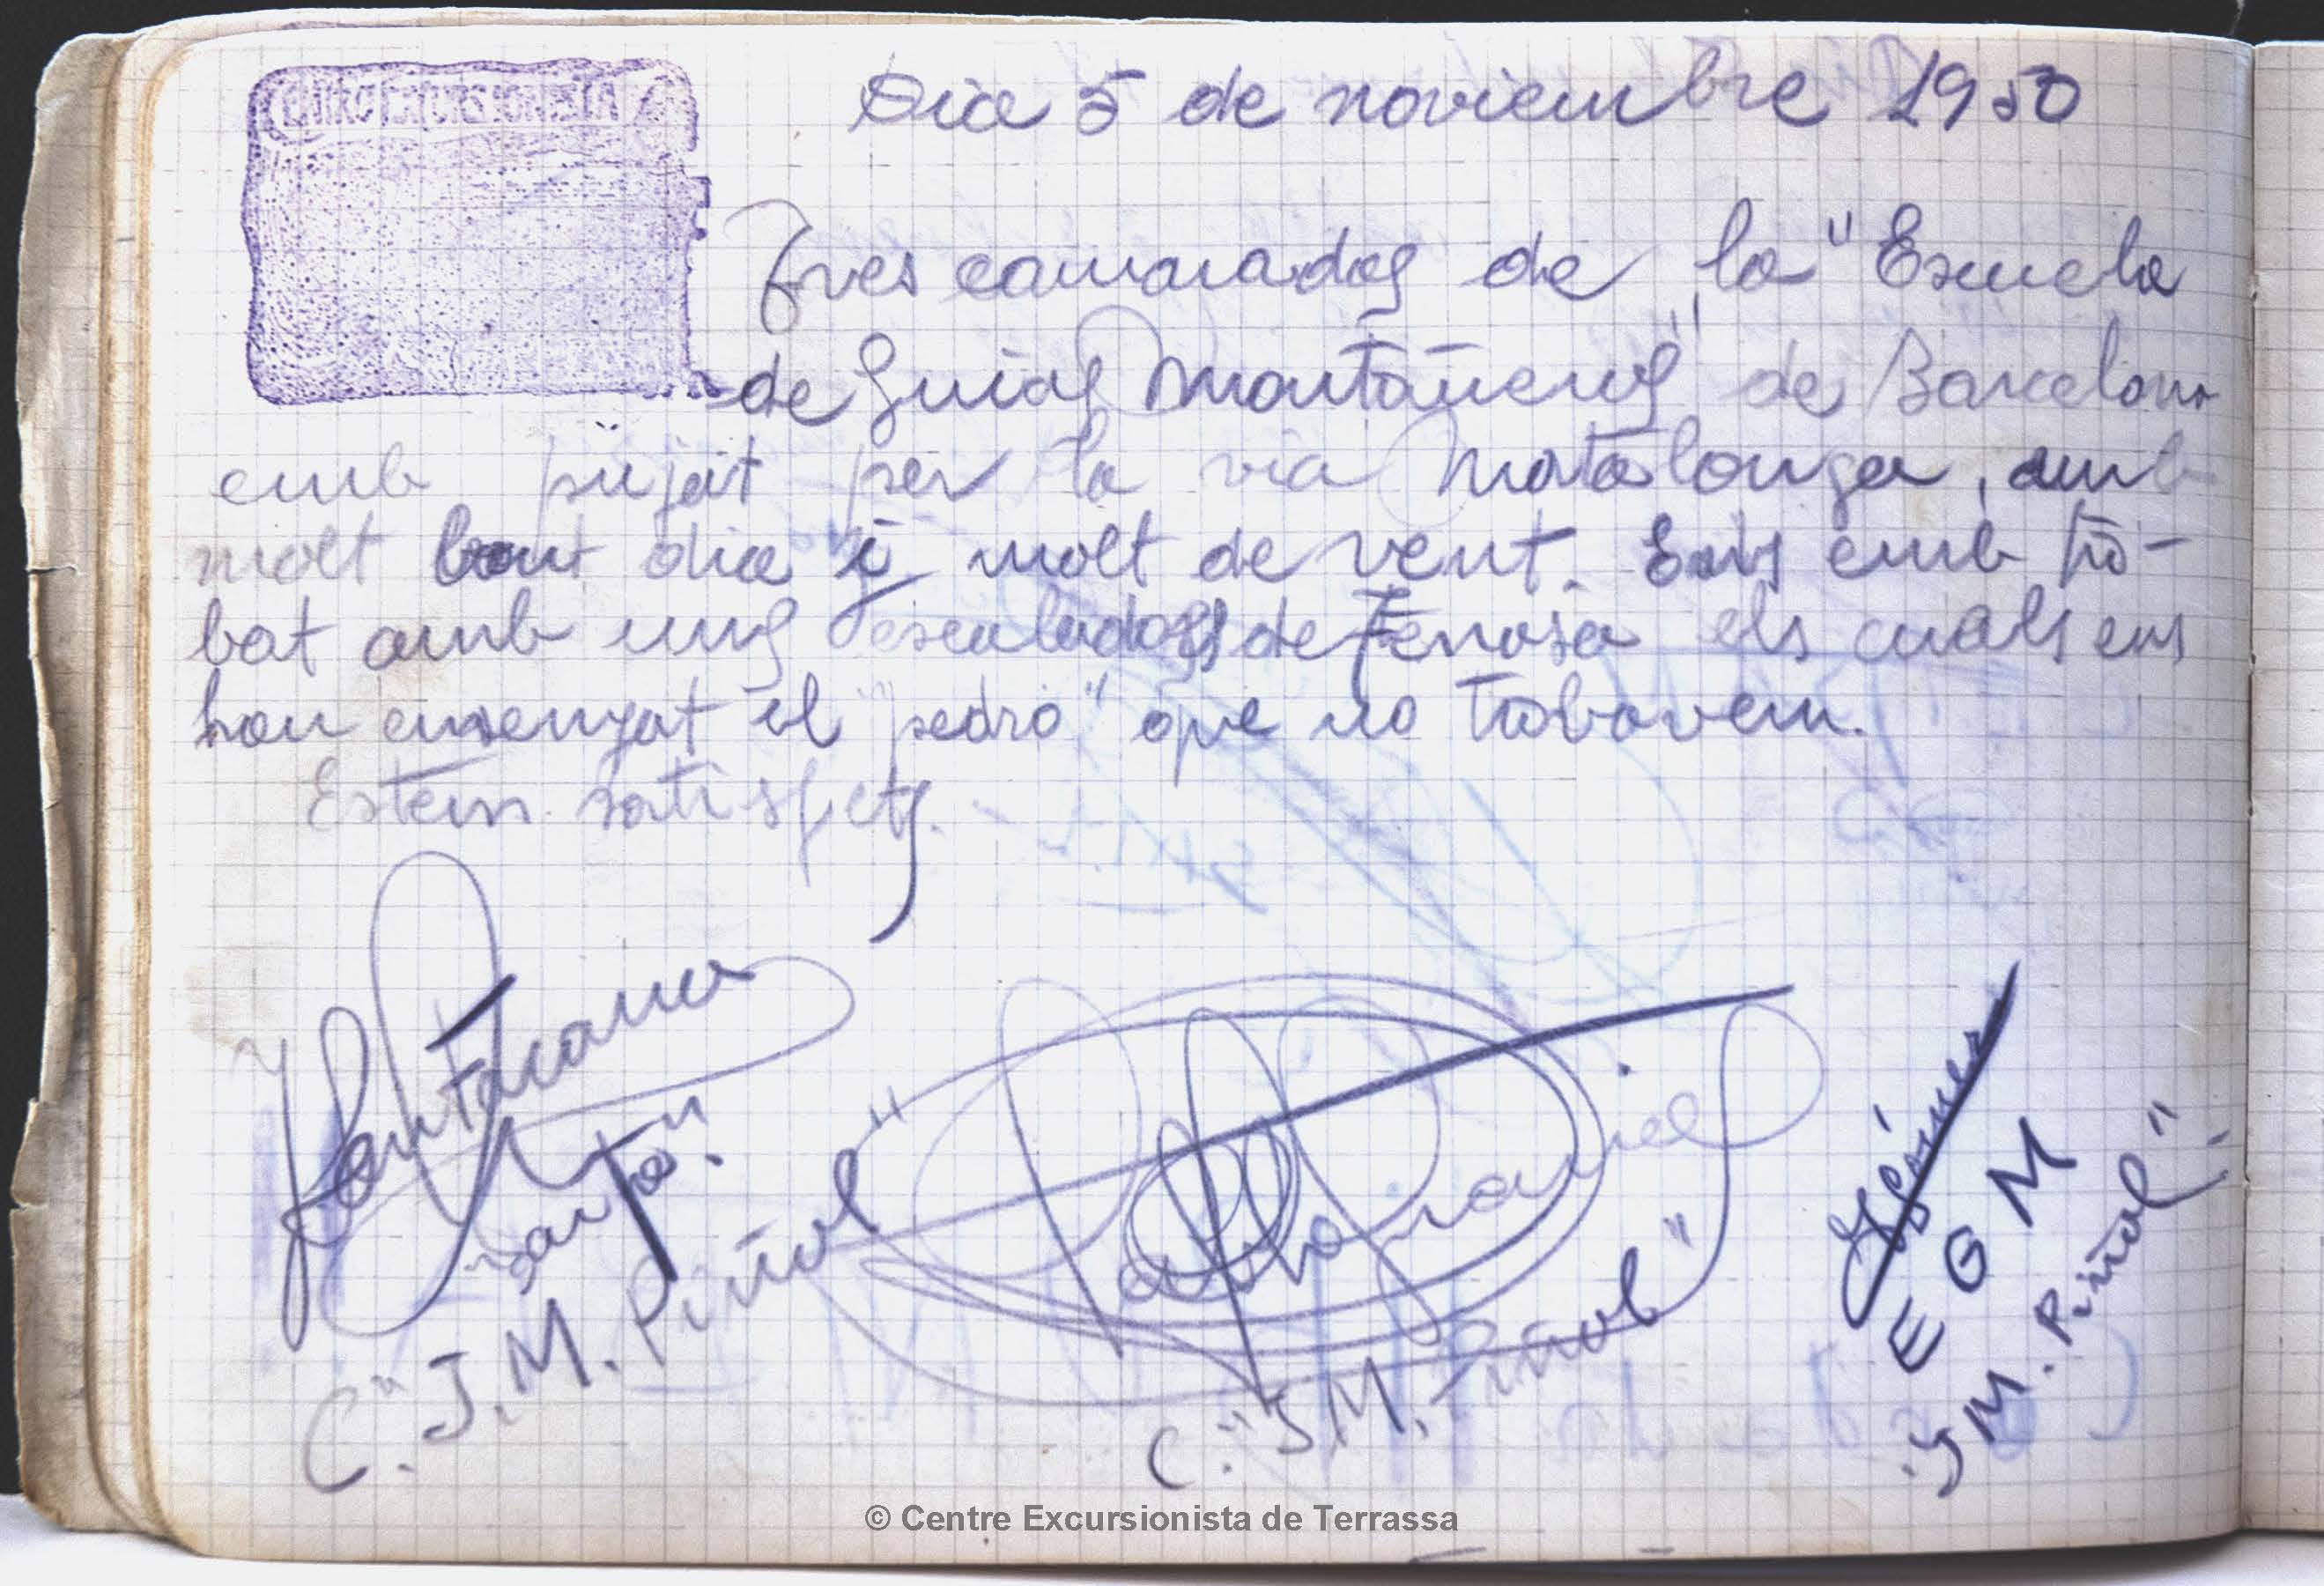 CENTRO EXCURSIONISTA
Dia 5 de noviembre 1950
Tres camaradas de la "Escuela
de Guias Montañeros" de Barcelona
emb pujat per la via Matalonga, amb
molt bon dia i molt de vent. Ens emb tro-
bat amb uns escaladors de Terrasa els cuals ens
han ensenyat el "pedró" que no trobavem.
Estem satisfets.
Santacana
"santa"
C. "J.M. Piñol"
C. "J.M. Piñol"
Jiménez
E G M
"J M. Piñol"
© Centre Excursionista de Terrassa